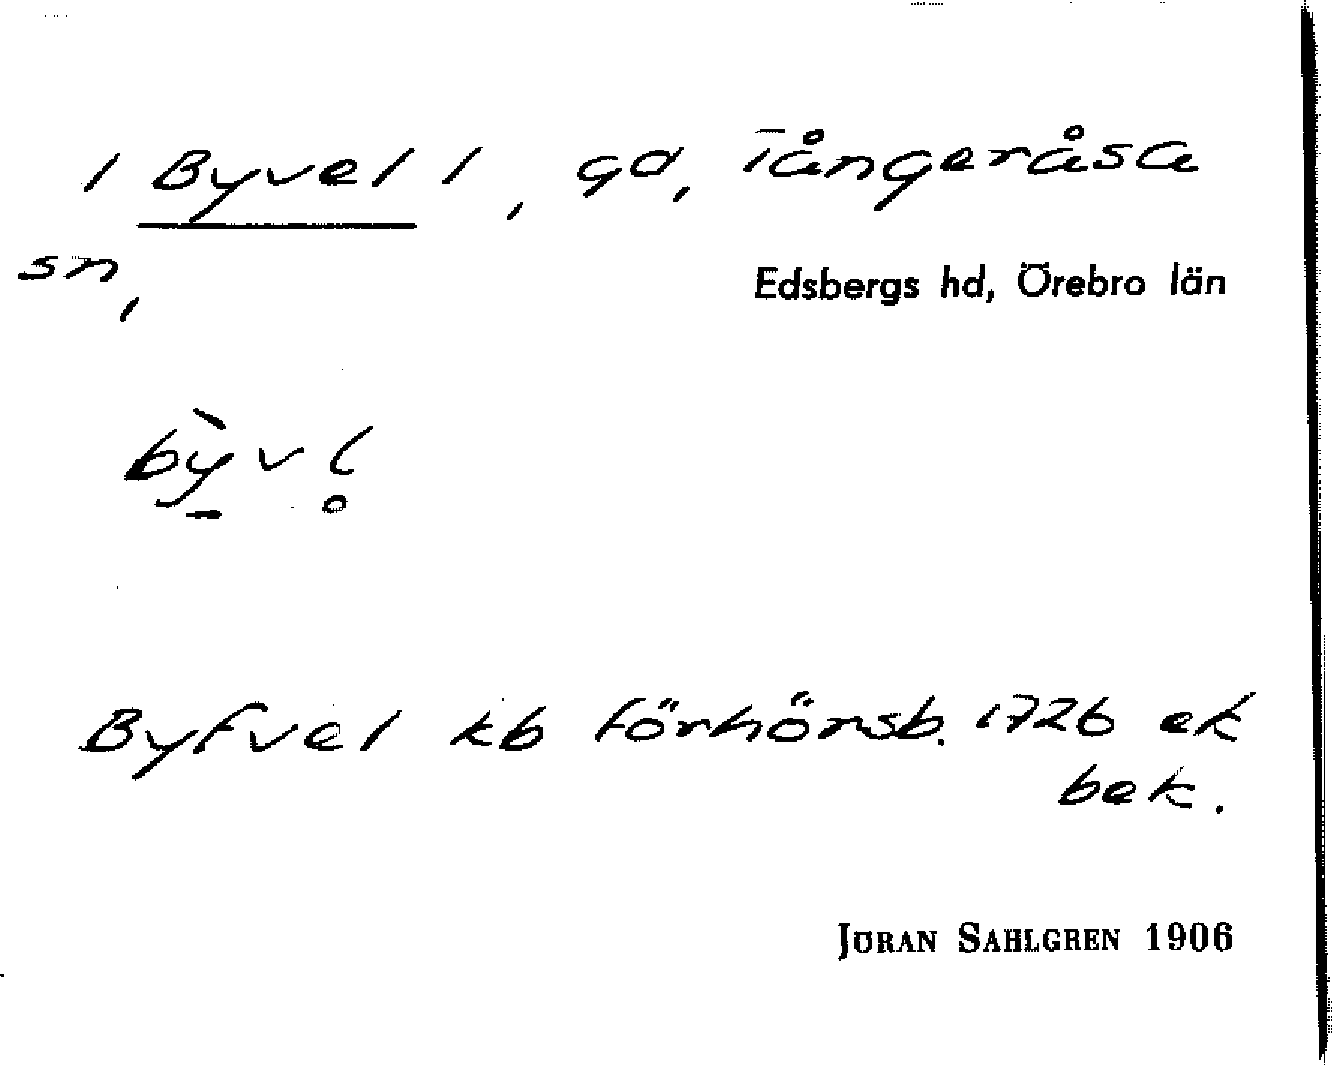 / Byvel /, gd, Tångeråsa
sn,
Edsbergs hd, Örebro län
bỳvl̥
Byfvel kb förhörsb. 1726 ek
bek.
JÖRAN SAHLGREN 1906